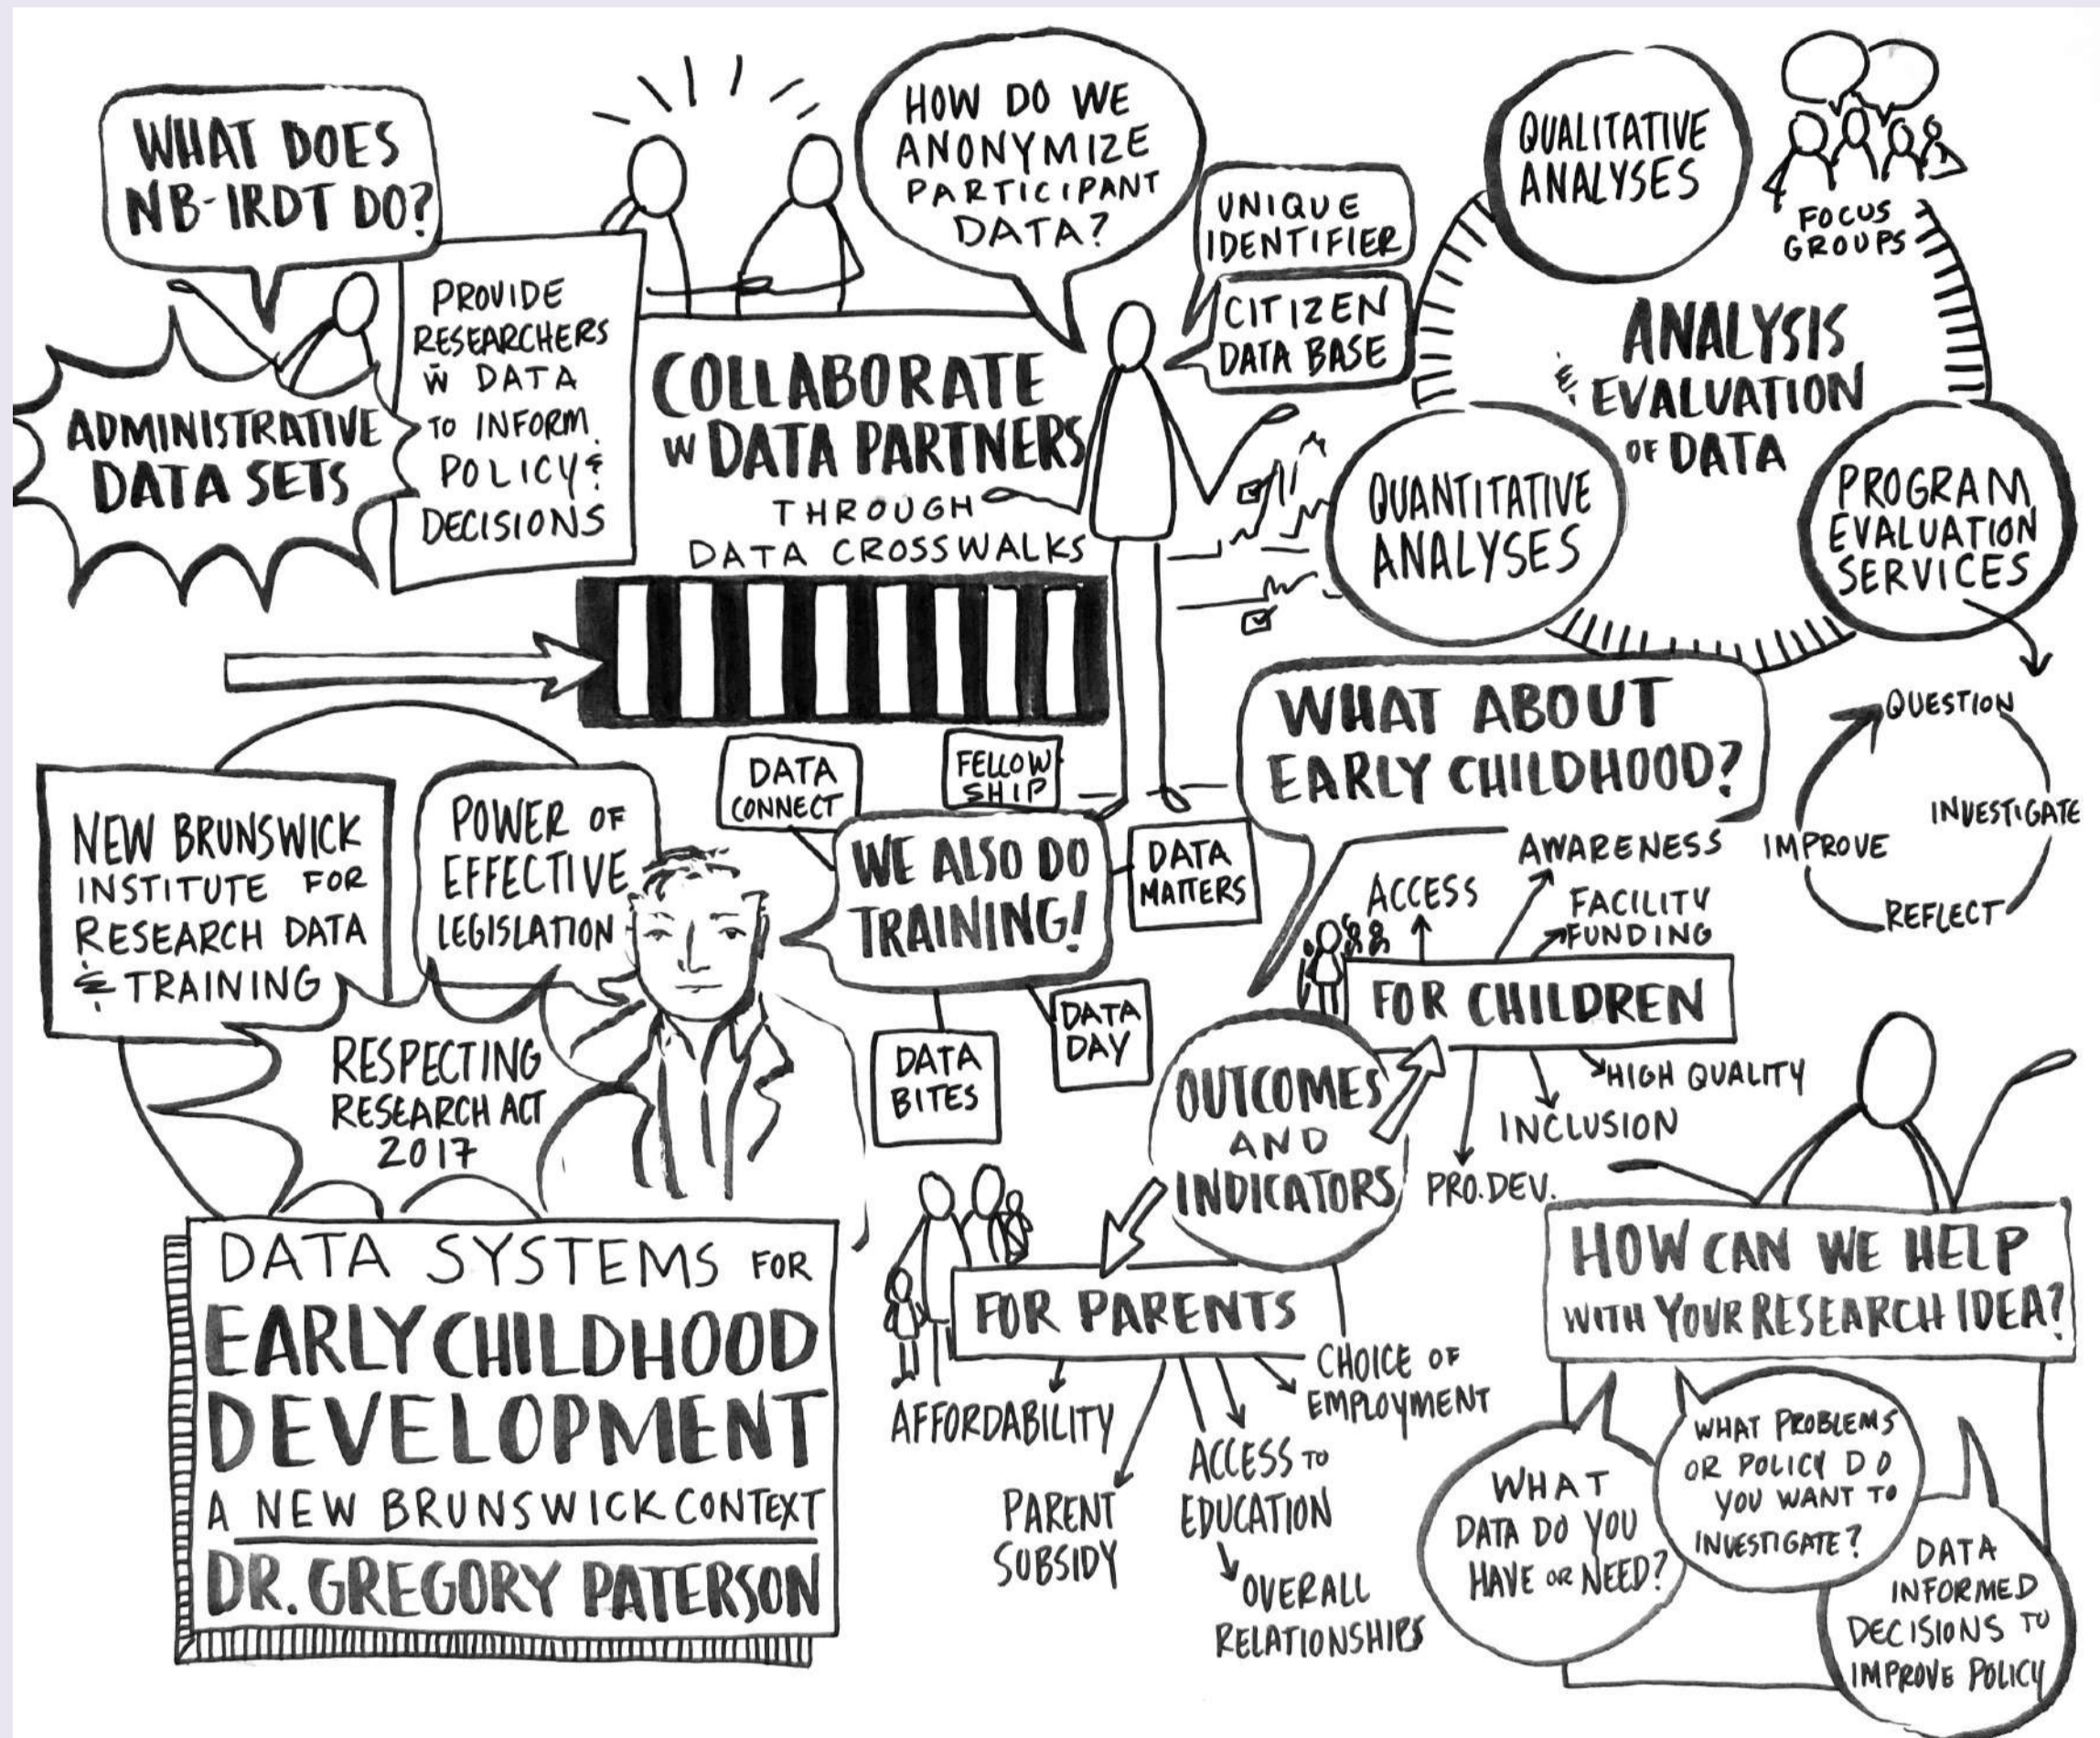 WHAT DOES
NB-IRDT DO?
ADMINISTRATIVE
DATA SETS
PROVIDE
RESEARCHERS
W DATA
TO INFORM
POLICY &
DECISIONS
COLLABORATE
W DATA PARTNERS
THROUGH
DATA CROSSWALKS
HOW DO WE
ANONYMIZE
PARTICIPANT
DATA?
UNIQUE
IDENTIFIER
CITIZEN
DATA BASE
QUALITATIVE
ANALYSES
FOCUS
GROUPS
ANALYSIS
& EVALUATION
OF DATA
QUANTITATIVE
ANALYSES
PROGRAM
EVALUATION
SERVICES
QUESTION
INVESTIGATE
REFLECT
IMPROVE
NEW BRUNSWICK
INSTITUTE FOR
RESEARCH DATA
& TRAINING
POWER OF
EFFECTIVE
LEGISLATION
RESPECTING
RESEARCH ACT
2017
WE ALSO DO
TRAINING!
DATA
CONNECT
FELLOW
SHIP
DATA
MATTERS
DATA
DAY
DATA
BITES
WHAT ABOUT
EARLY CHILDHOOD?
OUTCOMES
AND
INDICATORS
FOR CHILDREN
ACCESS
AWARENESS
FACILITY
FUNDING
HIGH QUALITY
INCLUSION
PRO.DEV.
FOR PARENTS
AFFORDABILITY
PARENT
SUBSIDY
ACCESS TO
EDUCATION
OVERALL
RELATIONSHIPS
CHOICE OF
EMPLOYMENT
DATA SYSTEMS FOR
EARLY CHILDHOOD
DEVELOPMENT
A NEW BRUNSWICK CONTEXT
DR. GREGORY PATERSON
HOW CAN WE HELP
WITH YOUR RESEARCH IDEA?
WHAT
DATA DO YOU
HAVE OR NEED?
WHAT PROBLEMS
OR POLICY DO
YOU WANT TO
INVESTIGATE?
DATA
INFORMED
DECISIONS TO
IMPROVE POLICY